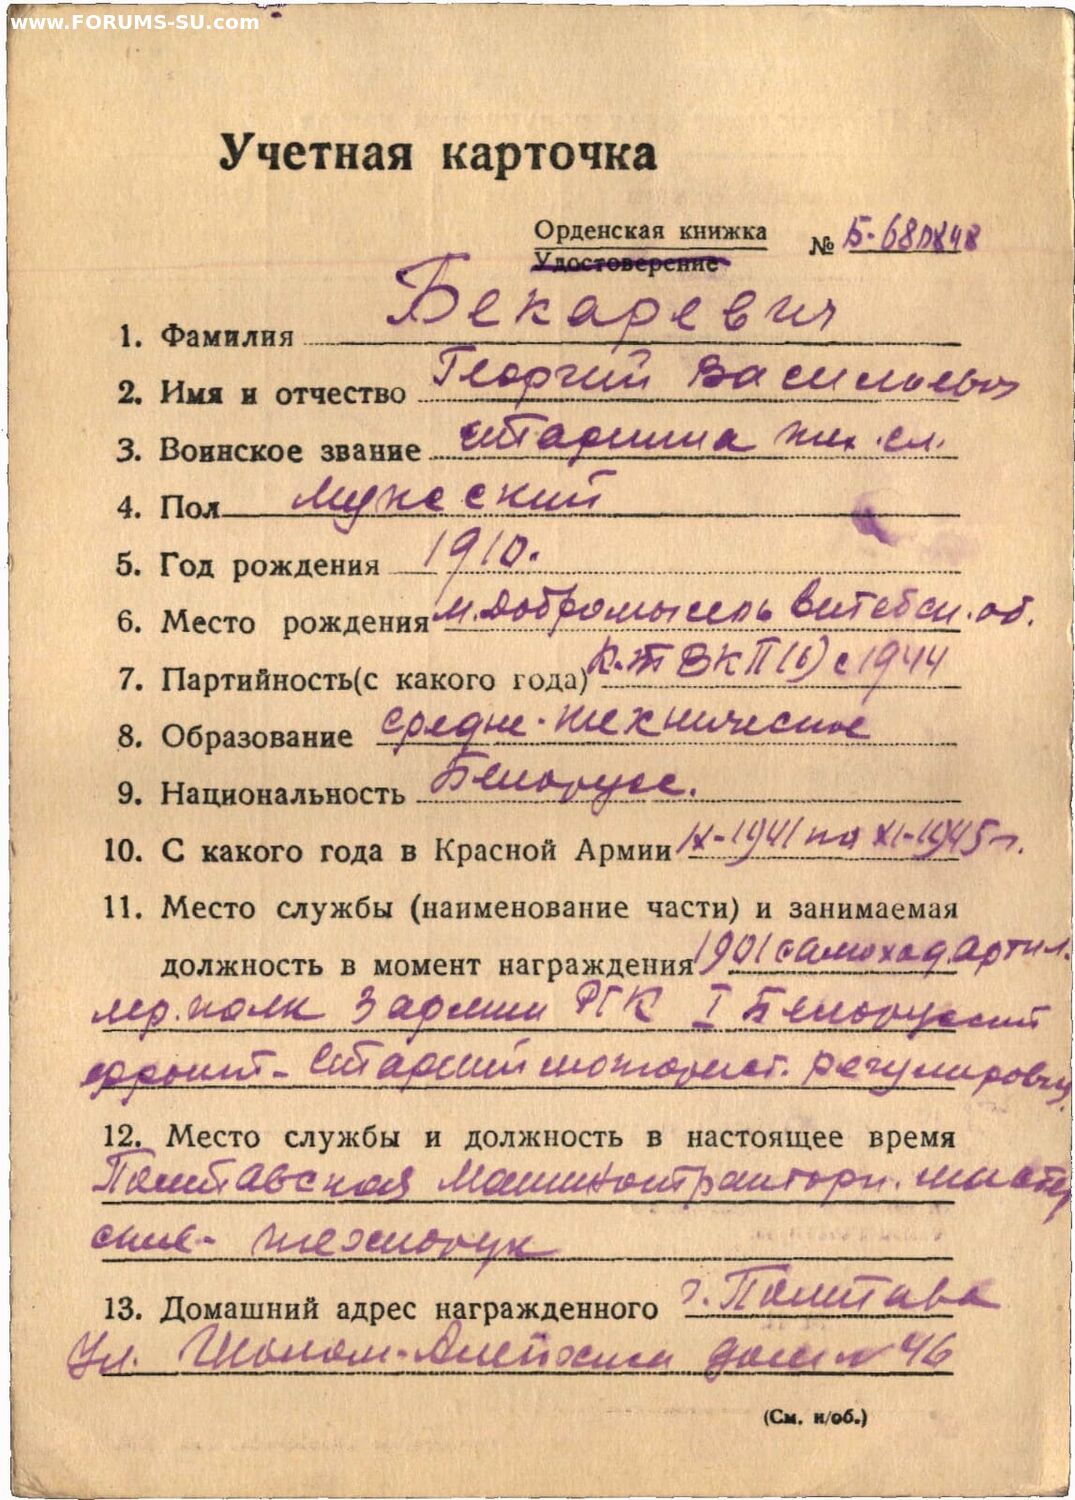 www.FORUMS-SU.com
Учетная карточка
Орденская книжка
Удостоверение
№ Б-
1. Фамилия Бекаревич
2. Имя и отчество Георгий Васильевич
3. Воинское звание старшина тех. сл.
4. Пол мужской
5. Год рождения 1910.
6. Место рождения м. Добромысль Витебск. об.
7. Партийность(с какого года) к-т ВКП(б) с 1944
8. Образование средне-техническое
9. Национальность Белорус.
10. С какого года в Красной Армии IX-1941 по XI-1945 г.
11. Место службы (наименование части) и занимаемая
должность в момент награждения 1901 самоход. Артил.
лер. полк 3 армии РГК I Белорусский
фронт- Старший моторист. регулировщ.
12. Место службы и должность в настоящее время
Полтавская Машинотракторн. мастер
ские- техпорук
13. Домашний адрес награжденного г. Полтава
Ул. Шолом-Алейхем дом № 46
(См. н/об.)